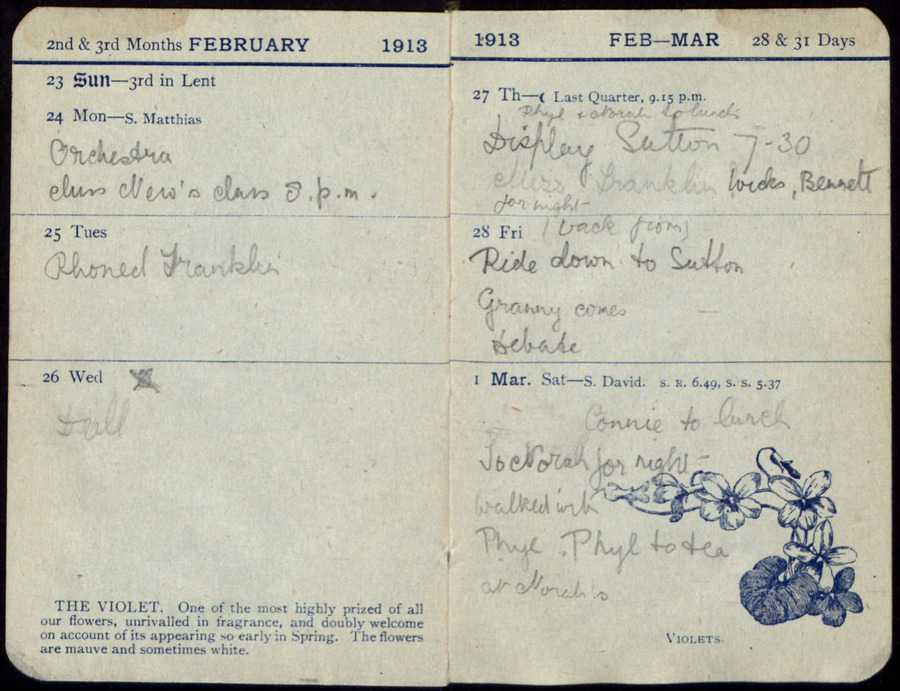 2nd & 3rd Months FEBRUARY 1913
23 Sun—3rd in Lent
24 Mon—S. Matthias
Orchestra
class New's class 8.p.m.
25 Tues
Phoned Franklin
26 Wed
Drill
THE VIOLET. One of the most highly prized of all
our flowers, unrivalled in fragrance, and doubly welcome
on account of its appearing so early in Spring. The flowers
are mauve and sometimes white.
1913 FEB—MAR 28 & 31 Days
27 Th—☾ Last Quarter, 9.15 p.m.
Phyl & Norah to lunch
Display Sutton 7-30
Miss Franklin Wicks, Bennett
for night-
28 Fri (back from)
Ride down to Sutton
Granny comes
Debate
1 Mar. Sat—S. David. S. R. 6.49, S. S. 5.37
Connie to lunch
To Norah for night-
walked with
Phyl. Phyl to tea
at Norah's
VIOLETS.